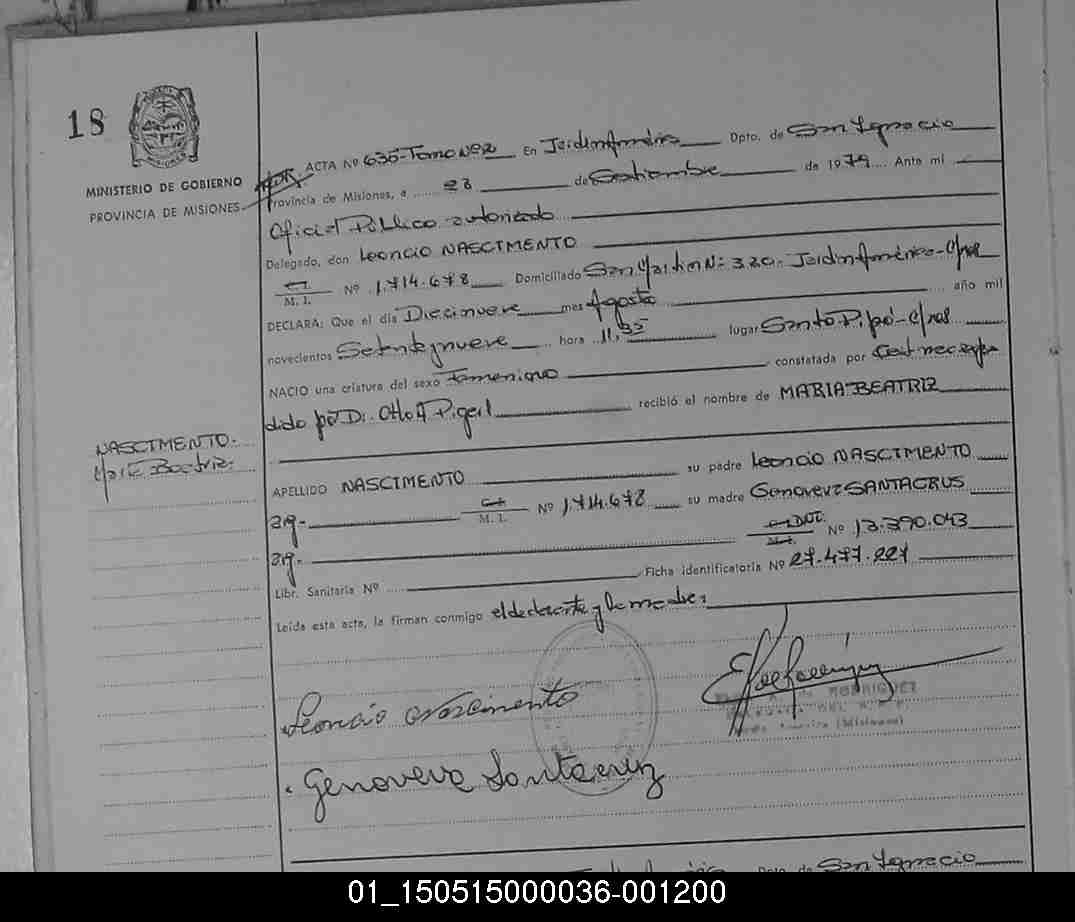 18
MINISTERIO DE GOBIERNO
PROVINCIA DE MISIONES
ACTA Nº 635-Tomo Nº2 En Jardin América Dpto. de San Ignacio
Provincia de Misiones, a ...... 28 de Setiembre de 1979... Ante mi
Oficial Público autorizado
Delegado, don Leoncio NASCIMENTO
C.I. M. I. Nº 1.714.678 Domiciliado San Martin Nº 320. Jardin América-
DECLARA: Que el día Diecinueve mes Agosto año mil
novecientos Setentaynueve hora 11,35 lugar Santo Pipó-
NACIO una criatura del sexo Femenino constatada por Cert. med. expe
dido por Dr. Otto A Pigerl recibió el nombre de MARIA BEATRIZ
NASCIMENTO.
Maria Beatriz.
APELLIDO NASCIMENTO su padre Leoncio NASCIMENTO
arg.- C.I. M. I. Nº 1.714.678 su madre Genoveva SANTACRUS
arg.- DNI. M.I. Nº 13.390.043
Libr. Sanitaria Nº Ficha identificatoria Nº 27.477.227
Leída esta acta, la firman conmigo el declarante y la madre:
RODRIGUEZ
(Misiones)
Leoncio Nascimento
Genoveva Santacruz
Dpto. de San Ignacio
01_150515000036-001200